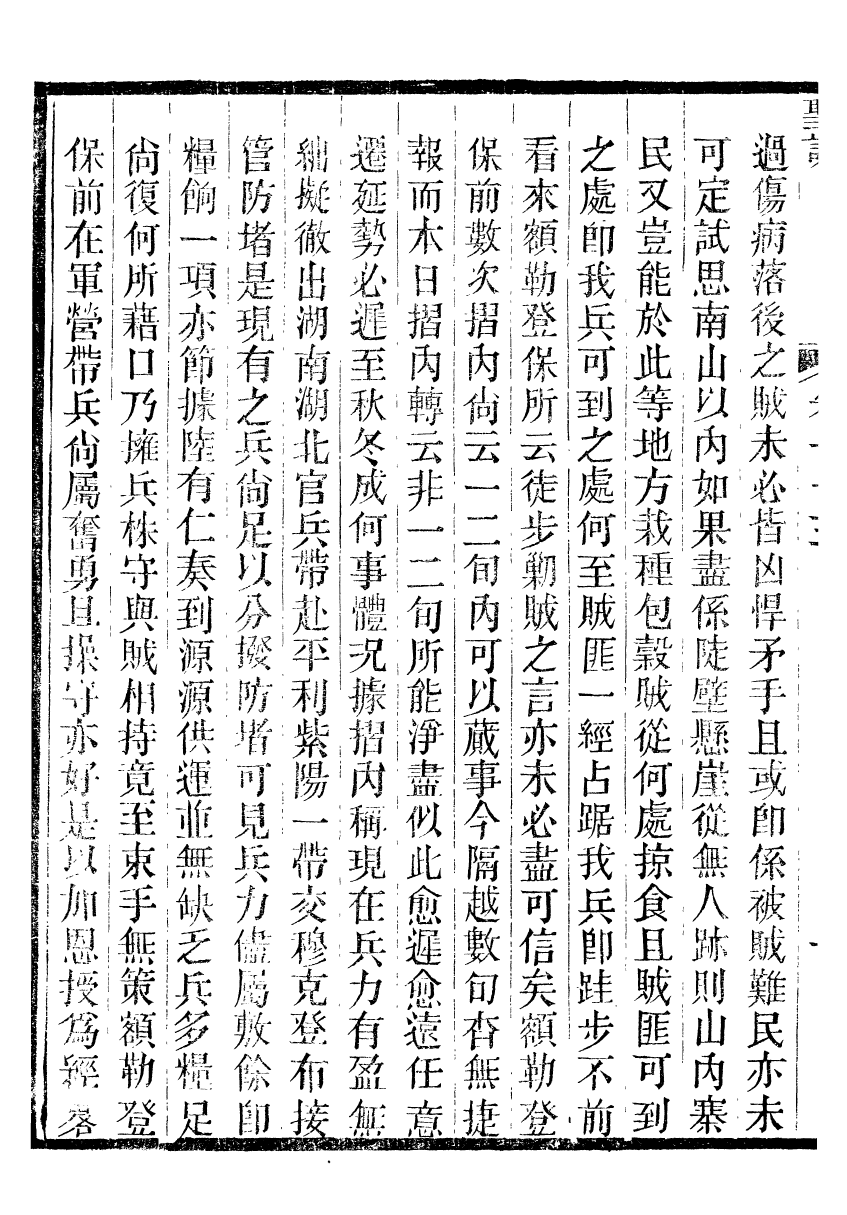 過傷病落後之賊未必皆凶悍矛手且或卽係被賊難民亦未
可定試思南山以內如果盡係陡壁懸崖從無人跡則山內寨
民又豈能於此等地方栽種包穀賊從何處掠食且賊匪可到
之處卽我兵可到之處何至賊匪一經占踞我兵卽跬步不前
看來額勒登保所云徒步勦賊之言亦未必盡可信矣額勒登
保前數次摺內尙云一二旬內可以蕆事今隔越數旬杳無捷
報而本日摺內轉云非一二旬所能淨盡似此愈遲愈遠任意
遷延勢必遲至秋冬成何事體况據摺內稱現在兵力有盈無
絀擬徹出湖南湖北官兵帶赴平利紫陽一帶交穆克登布接
管防堵是現有之兵尙足以分撥防堵可見兵力儘屬敷餘卽
糧餉一項亦節據陸有仁奏到源源供運並無缺乏兵多糧足
尙復何所藉口乃擁兵株守與賊相持竟至束手無策額勒登
保前在軍營帶兵尙屬奮勇且操守亦好是以加恩授爲經畧